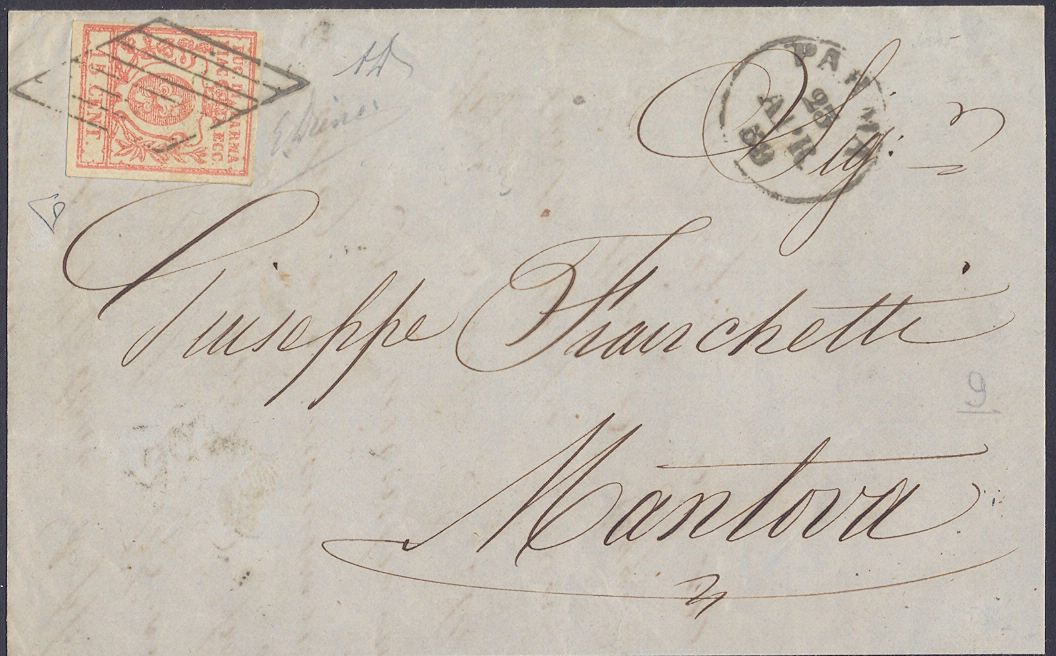 DUC. DI PARMA
PIAC. ECC.
15 CENT
PARMA
25
APR
59
Sig:
Giuseppe Franchetti
Mantova
9